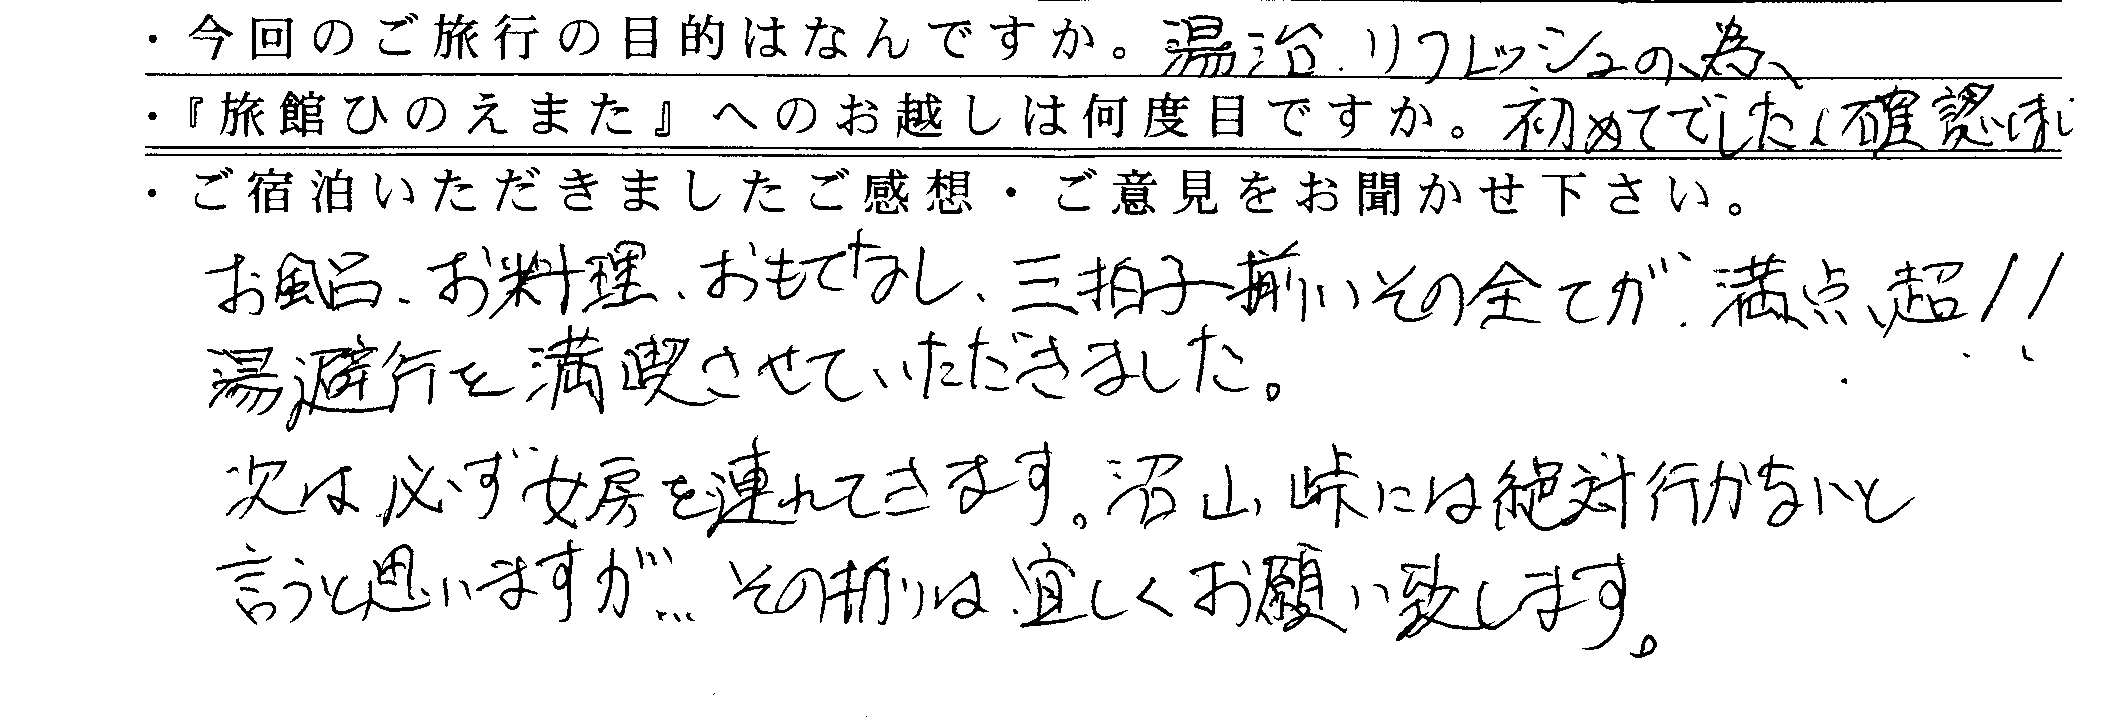 ・今回のご旅行の目的はなんですか。湯治、リフレッシュの為、
・『旅館ひのえまた』へのお越しは何度目ですか。初めてでした。確認はし
・ご宿泊いただきましたご感想・ご意見をお聞かせ下さい。
お風呂、お料理、おもてなし、三拍子揃いその全てが、満点、超!!
湯避行を満喫させていただきました。
次は必ず女房を連れてきます。沼山峠には絶対行かないと
言うと思いますが… その折りは宜しくお願い致します。